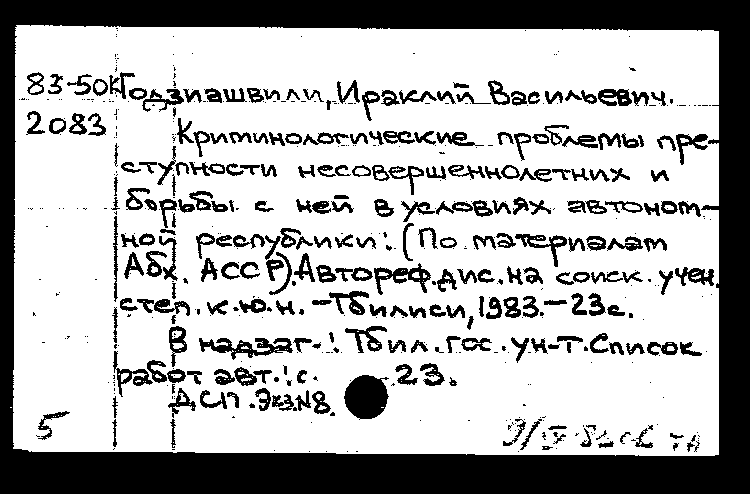 83-50К Годзиашвили, Ираклий Васильевич.
2083
Криминологические проблемы пре-
ступности несовершеннолетних и
борьбы с ней в условиях автоном-
ной республики: (По материалам
Абх. АССР). Автореф. дис. на соиск. учен.
степ. к.ю.н. - Тбилиси, 1983. - 23с.
В надзаг.: Тбил. гос. ун-т. Список
работ авт.: с. 23.
ДСП. Экз. №8.
5